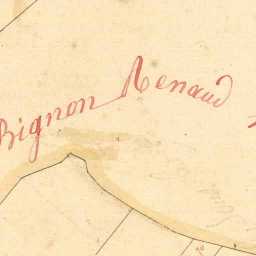 Bignon Renaud